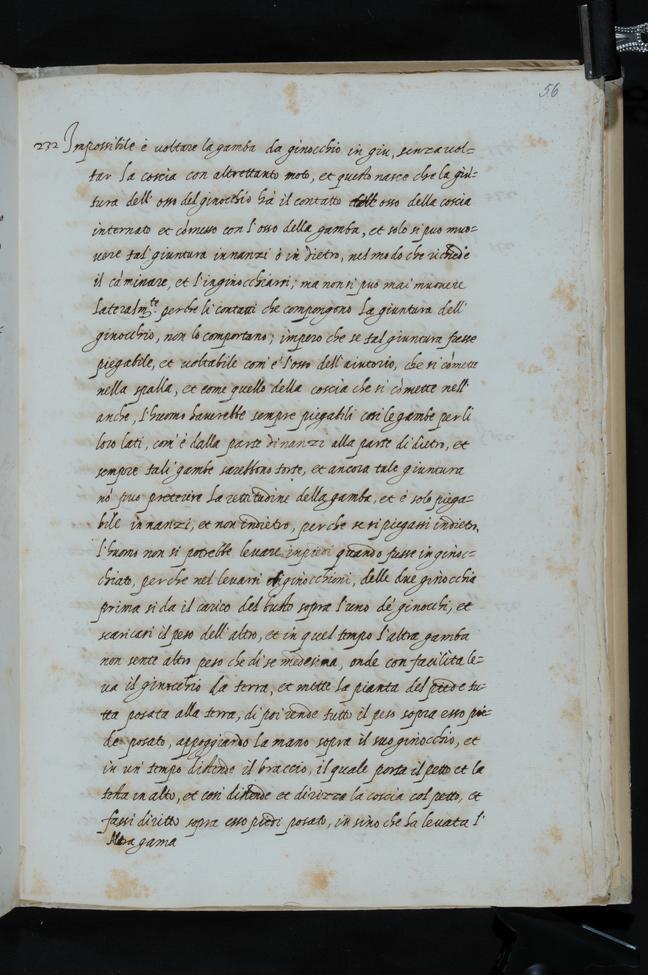 56
232 Impossibile è voltare la gamba da ginocchio in giu, senza vol=
tar la coscia con altrettanto moto, et questo nasce che la giu=
tura dell' osso del ginocchio hà il contatto dell' osso della coscia
internato et cōmesso con l'osso della gamba, et solo si puo muo=
vere tal giuntura innanzi ò in dietro, nel modo che richiede
il cāminare, et l'inginocchiarsi; ma non si puo mai muovere
lateralmte. perche li contatti che compongono la giuntura dell'
ginocchio, non lo comportano; impero che se tal giuntura fusse
piegabile, et voltabile com' è l'osso dell' aiutorio, che si cōmette
nella spalla, et come quello della coscia che si cōmette nell'
anche, l'huomo haverebbe sempre piegabili cosi le gambe per li
loro lati, com' è dalla parte dinanzi alla parte di dietro, et
sempre tali gambe sarebbono torte, et ancora tale giuntura
nō puo preterire la rettitudine della gamba, et è solo piega=
bile innanzi, et non indietro, perche se si piegassi indietro,
l'huomo non si potrebbe levare inpiedi quando fusse inginoc=
chiato, perche nel levarsi di ginocchioni, delle due ginocchia
prima si da il carico del busto sopra l'uno de' ginocchi, et
scaricasi il peso dell' altro, et in quel tempo l'altra gamba
non sente altro peso che di se medesima, onde con facilità le=
va il ginocchio da terra, et mette la pianta del piede tu=
tta posata alla terra, di poi rende tutto il peso sopra esso pie=
de posato, appoggiando la mano sopra il suo ginocchio, et
in un' tempo distende il braccio, il quale porta il petto et la
testa in alto, et cosi distende et dirizza la coscia col petto, et
fassi diritto sopra esso piedi posato, in sino che ha levata l'
Altra gama